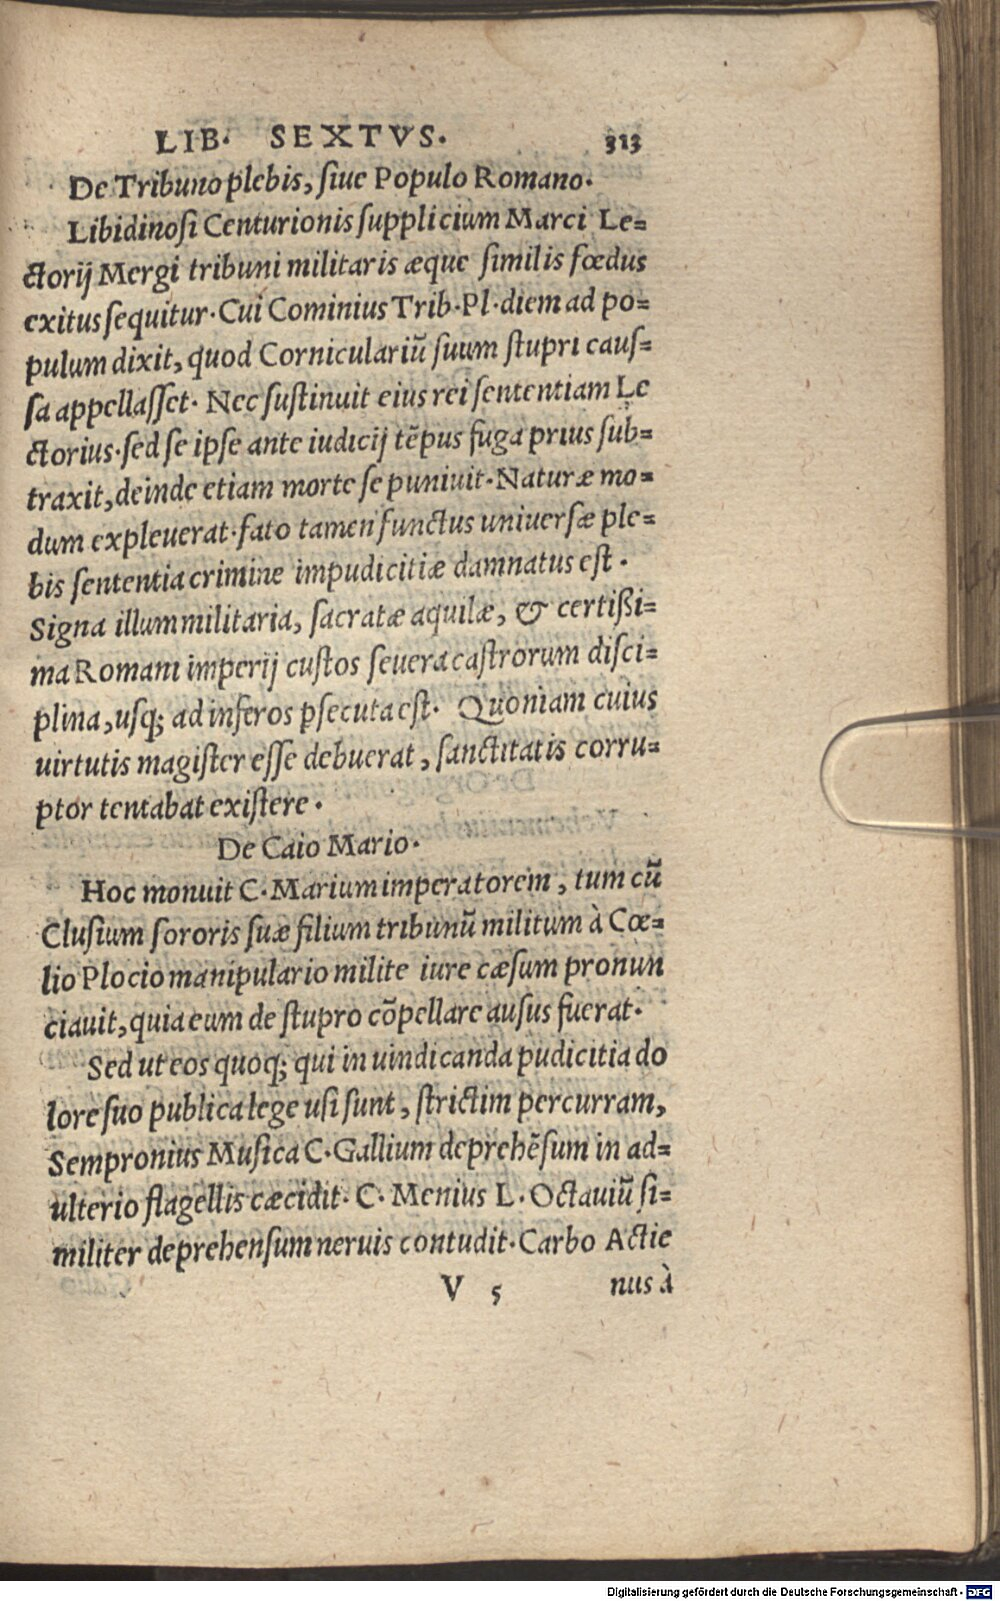 LIB. SEXTVS. 313
De Tribuno plebis, siue Populo Romano.
Libidinosi Centurionis supplicium Marci Le=
ctorij Mergi tribuni militaris æque similis fœdus
exitus sequitur. Cui Cominius Trib. Pl. diem ad po=
pulum dixit, quod Corniculariũ suum stupri caus=
sa appellasset. Nec sustinuit eius rei sententiam Le
ctorius. sed se ipse ante iudicij tẽpus fuga prius sub=
traxit, deinde etiam morte se puniuit. Naturæ mo=
dum expleuerat. fato tamen functus uniuersæ ple=
bis sententia crimine impudicitiæ damnatus est.
Signa illum militaria, sacratæ aquilæ, & certißi=
ma Romani imperij custos seuera castrorum disci=
plina, usq; ad inferos psecuta est. Quoniam cuius
uirtutis magister esse debuerat, sanctitatis corru=
ptor tentabat existere.
De Caio Mario.
Hoc monuit C. Marium imperatorem, tum cũ
Clusium sororis suæ filium tribunũ militum à Cœ=
lio Plocio manipulario milite iure cæsum pronun
ciauit, quia eum de stupro cõpellare ausus fuerat.
Sed ut eos quoq; qui in uindicanda pudicitia do
lore suo publica lege usi sunt, strictim percurram,
Sempronius Musica C. Gallium deprehẽsum in ad=
ulterio flagellis cæcidit. C. Menius L. Octauiũ si=
militer deprehensum neruis contudit. Carbo Actie
V 5 nus à
Digitalisierung gefördert durch die Deutsche Forschungsgemeinschaft - DFG